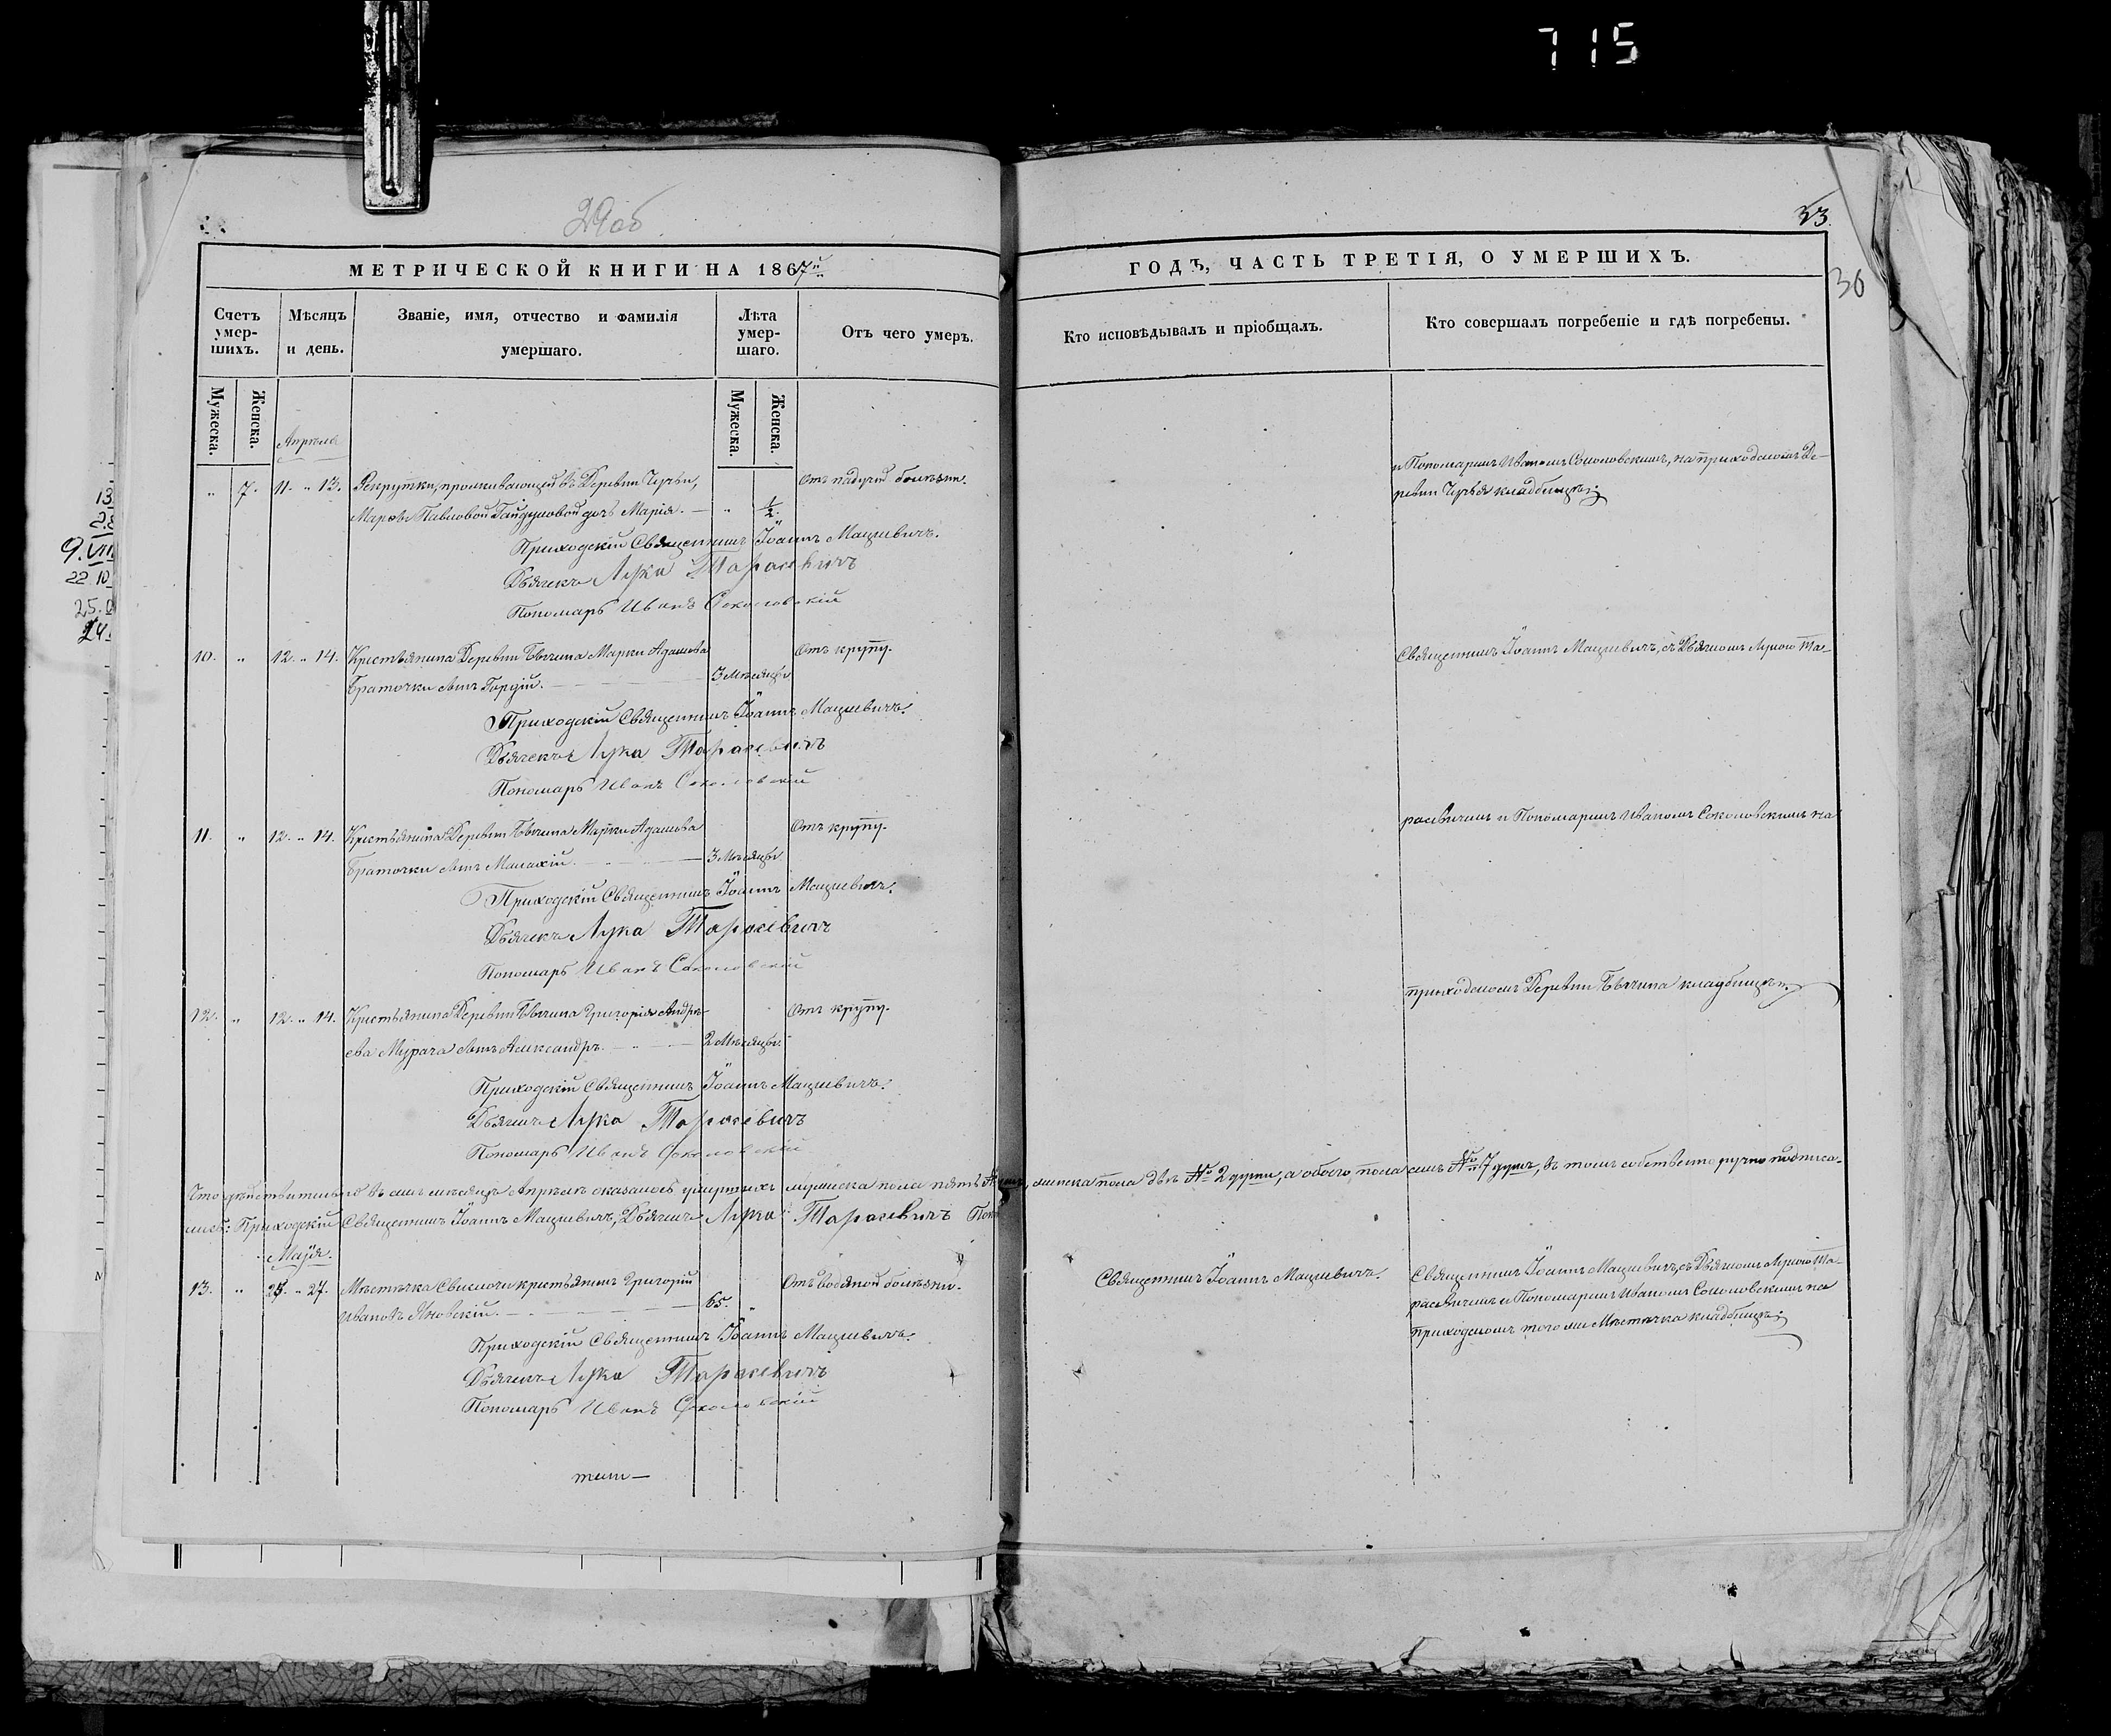 715
29об
33.
30
МЕТРИЧЕСКОЙ КНИГИ НА 1867й
ГОДЪ, ЧАСТЬ ТРЕТІЯ, О УМЕРШИХЪ.
Счетъ умер-шихъ.
Мѣсяцъ и день.
Званіе, имя, отчество и фамилія умершаго.
Лѣта умер-шаго.
Отъ чего умеръ.
Кто исповѣдывалъ и пріобщалъ.
Кто совершалъ погребеніе и гдѣ погребены.
Мужеска.
Женска.
Мужеска.
Женска.
Апрѣля
" 7. 11. " 13. Рекрутки, проживающей въ Деревни
Павловой Гайдуковой дочь Марія. — " ½.
Отъ падучей болѣзни.
и Пономаремъ Иваномъ Соколовскимъ, на приходскомъ Де-
ревни кладбищѣ;
Приходскій Священникъ Іоаннъ Мацкевичъ.
Дьячекъ Лука Тарасевичъ
Пономарь Иванъ Соколовскій
10. " 12. " 14. Крестьянина Деревни Бычина Марка Адамова
Браточки сынъ Гордій. — 3 Мѣсяцы
Отъ крупу.
Священникъ Іоаннъ Мацкевичъ, съ Дьячкомъ Лукою Та-
Приходскій Священникъ Іоаннъ Мацкевичъ.
Дьячекъ Лука Тарасевичъ
Пономарь Иванъ Соколовскій
11. " 12. " 14. Крестьянина Деревни Бычина Марка Адамова
Браточки сынъ Малахій. — 3 Мѣсяцы
Отъ крупу.
расевичемъ и Пономаремъ Иваномъ Соколовскимъ на
Приходскій Священникъ Іоаннъ Мацкевичъ.
Дьячекъ Лука Тарасевичъ
Пономарь Иванъ Соколовскій
12. " 12. " 14. Крестьянина Деревни Бычина Григорія Андре-
ева Мурача сынъ Александръ. — 2 Мѣсяцы.
Отъ крупу.
приходскомъ Деревни Бычина кладбищѣ.
Приходскій Священникъ Іоаннъ Мацкевичъ.
Дьячекъ Лука Тарасевичъ
Пономарь Иванъ Соколовскій
Что дѣйствительно въ семъ мѣсяцѣ Апрѣлѣ оказалось умершихъ мужеска пола пять женска пола двѣ № 2 души, а обоего пола семь № 7 душъ, въ томъ собственноручно подписа-
лись: Приходскій Священникъ Іоаннъ Мацкевичъ, Дьячекъ Лука Тарасевичъ
Маія.
13. " 25. " 27. Мѣстечка Свислочи крестьянинъ Григорій
Ивановъ Яновскій. — 65. "
Отъ водяной болѣзни.
Священникъ Іоаннъ Мацкевичъ.
Священникъ Іоаннъ Мацкевичъ, съ Дьячкомъ Лукою Та-
расевичемъ и Пономаремъ Иваномъ Соколовскимъ на
приходскомъ того же Мѣстечка кладбищѣ;
Приходскій Священникъ Іоаннъ Мацкевичъ.
Дьячекъ Лука Тарасевичъ
Пономарь Иванъ Соколовскій